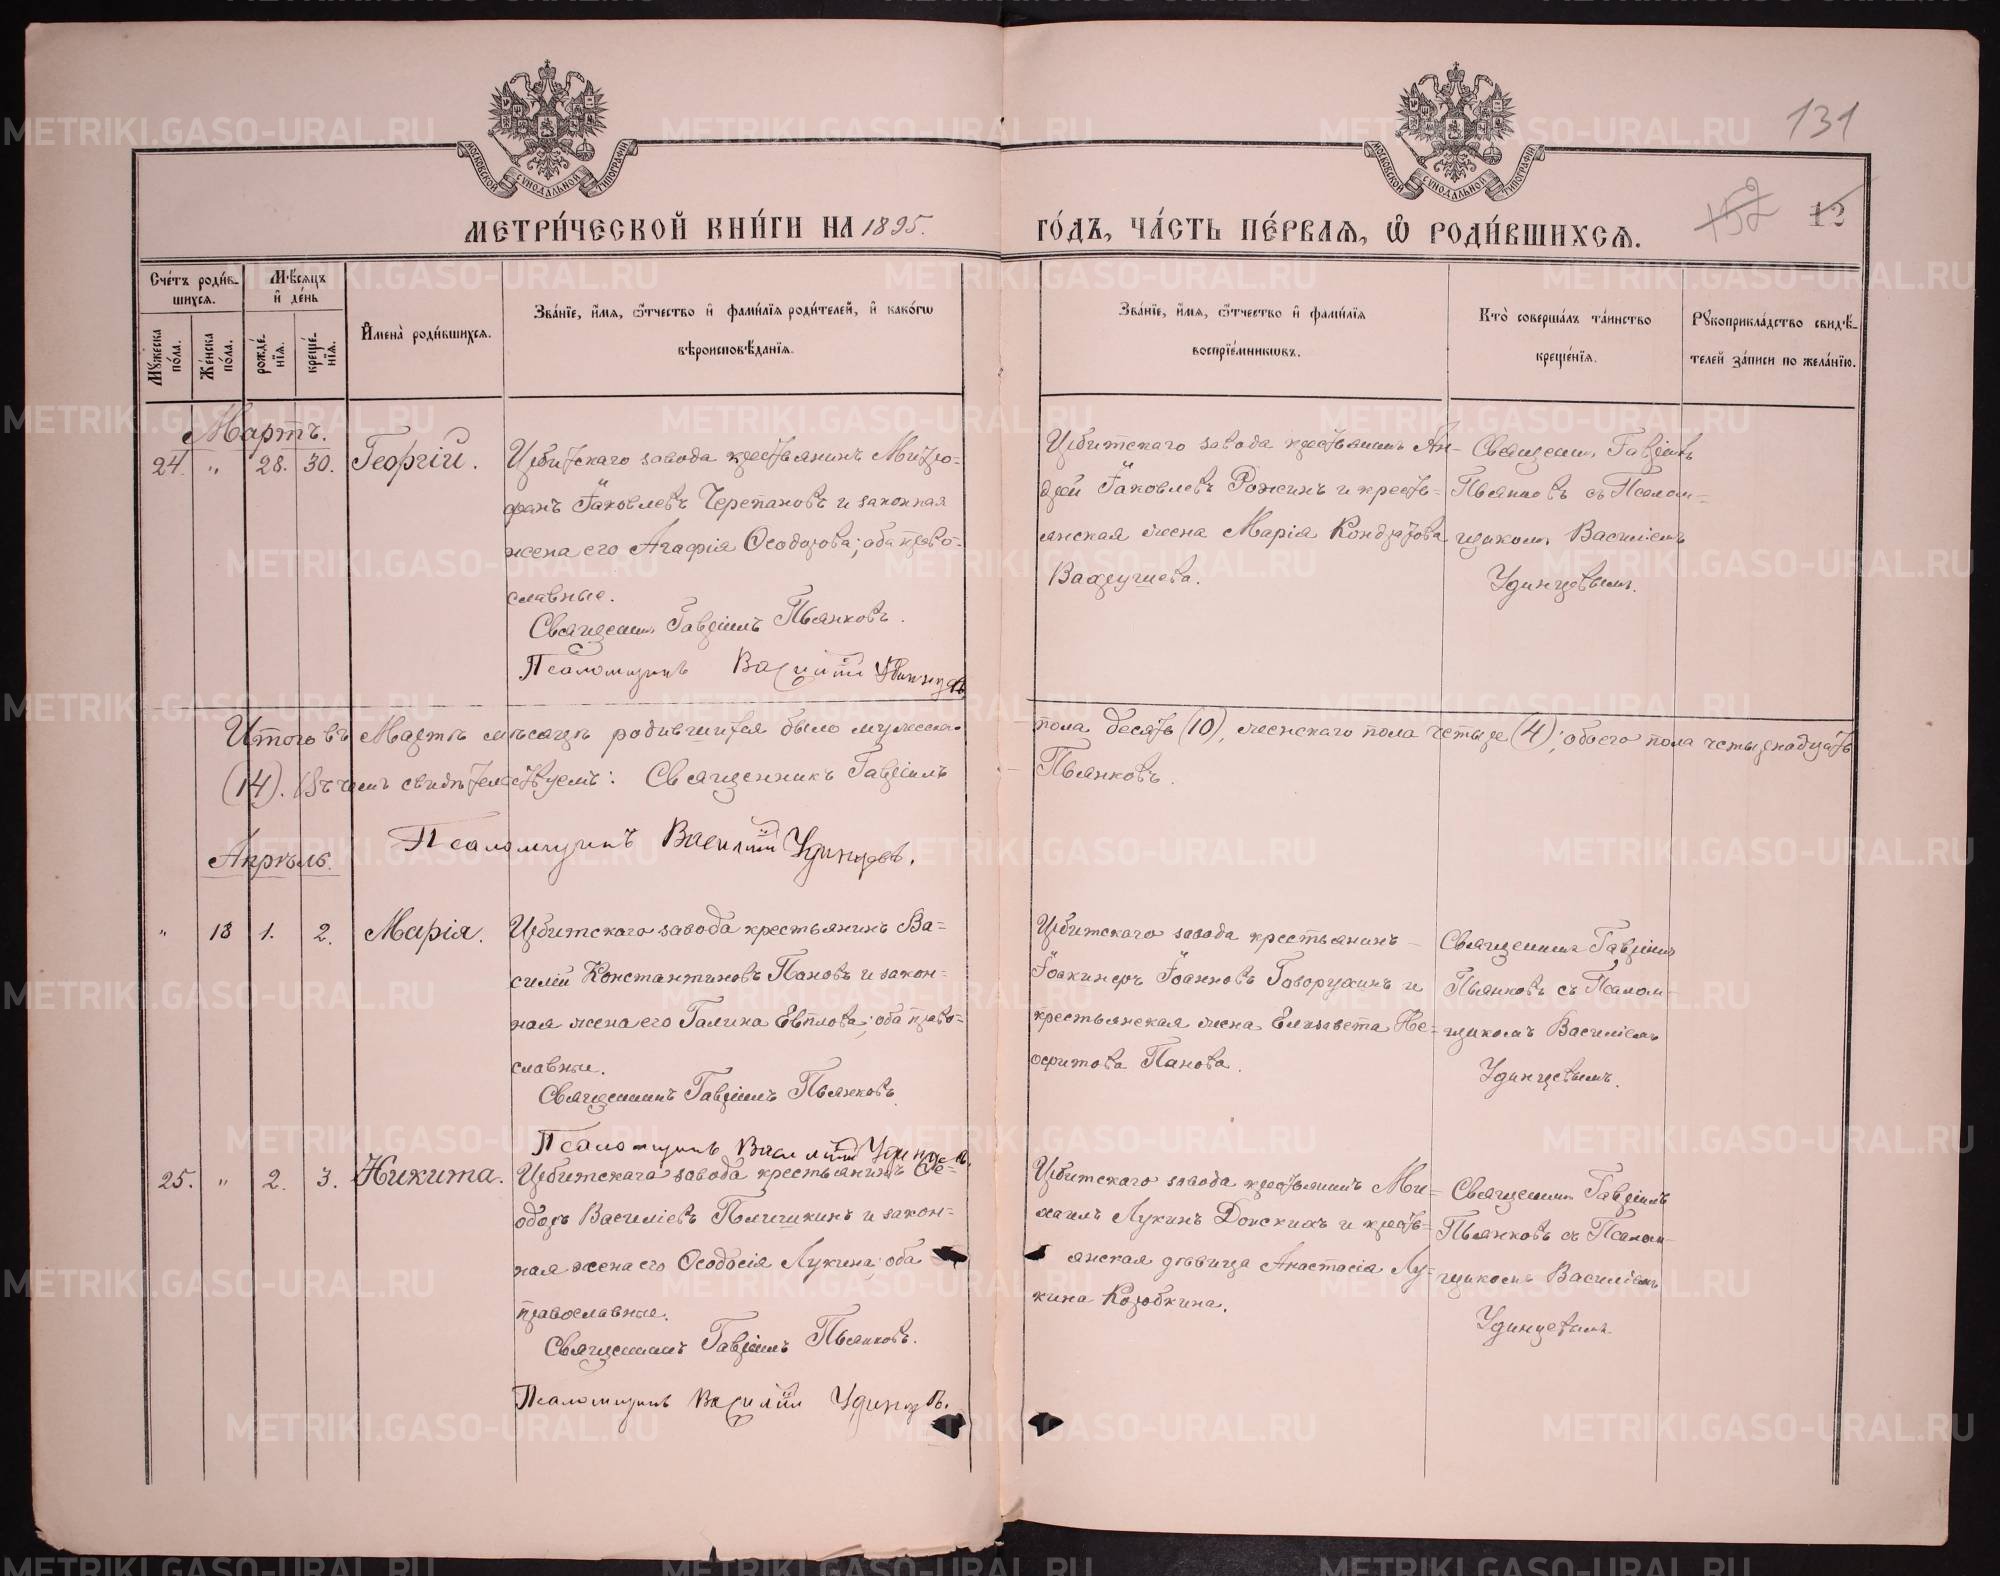 131
132
12
МОСКОВСКОЙ СѴНОДАЛЬНОЙ ТИПОГРАФИИ
МОСКОВСКОЙ СѴНОДАЛЬНОЙ ТИПОГРАФИИ
МЕТРИ́ЧЕСКОЙ КНИ́ГИ НА 1895.
ГО́ДЪ, ЧА́СТЬ ПЕ́РВАЯ, Ѽ РОДИ́ВШИХСЯ.
Сче́тъ роди́в-
шихся.
Мужеска по́ла.
Же́нска по́ла.
Мѣсяцъ
и҆ де́нь
рожде́-
нїя.
креще́-
нїя.
И҆мена̀ роди́вшихся.
Зва́нїе, и҆́мя, ѻ҆́тчество и҆ фами́лїя роди́телей, и҆ како́гѡ
вѣроисповѣ́данїя.
Зва́нїе, и҆́мя, ѻ҆́тчество и҆ фами́лїя
воспрїе́мникѡвъ.
Кто̀ соверша́лъ та́инство
креще́нїя.
Рꙋкоприкла́дство свидѣ́-
телей за́писи по жела́нїю.
Мартъ.
24. " 28. 30. Георгій.
Ирбитскаго завода крестьянинъ Митро-
фанъ Іаковлевъ Черепановъ и законная
жена его Агафія Ѳеодорова; оба право-
славные.
Священникъ Гавріилъ Пьянковъ.
Псаломщикъ Василій Удинцевъ
Ирбитскаго завода крестьянинъ Ан-
дрей Іаковлевъ Рожинъ и кресть-
янская жена Марія Кондратова
Вахрушева.
Священникъ Гавріилъ
Пьянковъ съ Псалом-
щикомъ Василіемъ
Удинцевымъ.
Итого въ Мартѣ мѣсяцѣ родившихся было мужеска
пола десять (10), женскаго пола четыре (4); обоего пола четырнадцать
(14). Въ чемъ свидѣтельствуемъ: Священникъ Гавріилъ
Пьянковъ.
Псаломщикъ Василій Удинцевъ.
Апрѣль.
" 13 1. 2. Марія.
Ирбитскаго завода крестьянинъ Ва-
силій Константиновъ Пановъ и закон-
ная жена его Галина Евплова; оба право-
славные.
Священникъ Гавріилъ Пьянковъ.
Псаломщикъ Василій Удинцевъ.
Ирбитскаго завода крестьянинъ
Іоакинфъ Іоанновъ Говорухинъ и
крестьянская жена Елизавета Не-
офитова Панова.
Священникъ Гавріилъ
Пьянковъ съ Псалом-
щикомъ Василіемъ
Удинцевымъ.
25. " 2. 3. Никита.
Ирбитскаго завода крестьянинъ Ѳе-
одоръ Василіевъ Пличкинъ и закон-
ная жена его Ѳеодосія Лукина; оба
православные.
Священникъ Гавріилъ Пьянковъ.
Псаломщикъ Василій Удинцевъ.
Ирбитскаго завода крестьянинъ Ми-
хаилъ Лукинъ Донскихъ и кресть-
янская дѣвица Анастасія Лу-
кина Коробкина.
Священникъ Гавріилъ
Пьянковъ съ Псалом-
щикомъ Василіемъ
Удинцевымъ.
METRIKI.GASO-URAL.RU